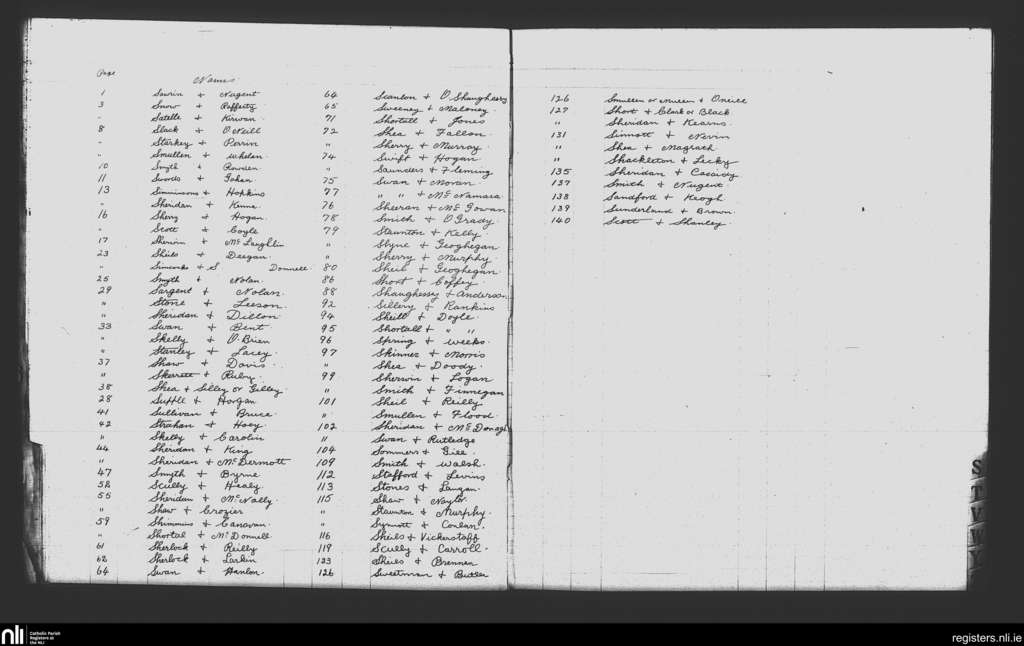 Page Names
1 Saurin + Nugent
3 Snow + Rafferty
" Satelle + Kirwan
8 Slack + O'Neill
" Starkey + Perrin
" Smullen + Whelan
10 Smyth + Rowden
11 Swords + Gahen
13 Simmisons + Hopkins
" Sheridan + Kinna
16 Sherry + Hogan
" Scott + Coyle
17 Sherwin + McLaughlin
23 Shiels + Deegan
" Simcocks + S Donnell
25 Smyth + Nolan
29 Sargent + Nolan
" Stone + Leeson
" Sheridan + Dillon
33 Swan + Bent
" Skelly + O'Brien
" Stanley + Lacey
37 Shaw + Davis
" Skerrett + Ruby
38 Shea + Silley or Gilley
28 Suffle + Horgan
41 Sullivan + Bruce
42 Strahan + Hoey
" Skelly + Carolin
44 Sheridan + King
" Sheridan + McDermott
47 Smyth + Byrne
52 Scully + Healy
55 Sheridan + McNally
" Shaw + Crozier
59 Shimmins + Canavan
" Shortal + McDonnell
61 Sherlock + Reilly
62 Sherlock + Larkin
64 Swan + Hanlon
64 Scanlon + O'Shaughessy
65 Sweeney + Maloney
71 Shortall + Jones
72 Shea + Fallon
" Sherry + Murray
74 Swift + Hogan
" Saunders + Fleming
75 Swan + Moran
77 " " + McNamara
76 Sheeran + McGowan
78 Smith + O'Grady
79 Staunton + Kelly
" Slyne + Geoghegan
" Sherry + Murphy
80 Sheil + Geoghegan
86 Short + Coffey
88 Shaughessy + Anderson
92 Sillery + Rankins
94 Sheill + Doyle
95 Shortall + " "
96 Spring + Weeks
97 Skinner + Morris
" Shea + Doody
99 Sherwin + Logan
" Smith + Finnegan
101 Sheil + Reilly
" Smullen + Flood
102 Sheridan + McDonagh
" Swan + Rutledge
104 Sommers + Gill
109 Smith + Walsh
112 Stafford + Levins
113 Stones + Langan
115 Shaw + Naylor
" Staunton + Murphy
" Synnott + Conlan
116 Sheils + Vickerstaff
119 Scully + Carroll
123 Sheils + Brennen
126 Sweetman + Butler
126 Smullen or Mullen + Oneill
127 Short + Clark or Black
" Sheridan + Kearns
131 Sinnott + Nevin
" Shea + Magrath
" Shackleton + Lecky
135 Sheridan + Cassidy
137 Smith + Nugent
138 Sandford + Keogh
139 Sunderland + Brown
140 Scott + Stanley
S
T
V
W
nli Catholic Parish
Registers at
the NLI
registers.nli.ie